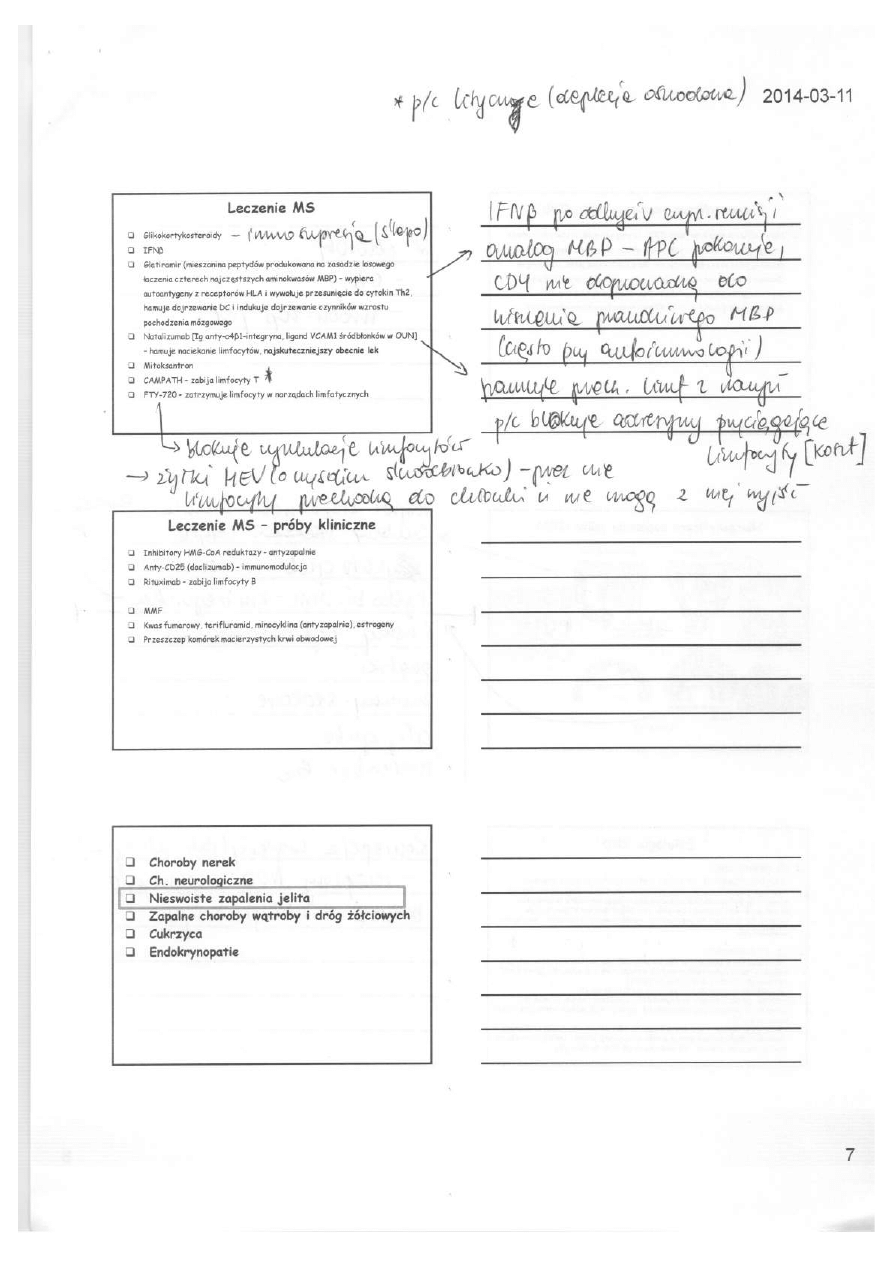 * p/c lityczne (deplecja obwodowa) 2014-03-11
Leczenie MS
❑ Glikokortykosteroidy – immunosupresja (ślepo)
❑ IFNβ
❑ Glatiramir (mieszanina peptydów produkowana na zasadzie losowego
łączenia czterech najczęstszych aminokwasów MBP) – wypiera
autoantygeny z receptorów HLA i wywołuje przesunięcie do cytokin Th2,
hamuje dojrzewanie DC i indukuje dojrzewanie czynników wzrostu
pochodzenia mózgowego
❑ Natalizumab [Ig anty-α4β1-integryna, ligand VCAM1 śródbłonków w OUN]
– hamuje naciekanie limfocytów, najskuteczniejszy obecnie lek
❑ Mitoksantron
❑ CAMPATH – zabija limfocyty T *
❑ FTY-720 – zatrzymuje limfocyty w narządach limfatycznych
IFNβ po
analog MBP – APC pokazuje,
CD4 nie doprowadzą do
niszczenia prawdziwego MBP
(często przy autoimmunologii)
hamuje przech. limf z naczyń
p/c blokuje adhezyny przyciągające
limfocyty
→ blokuje cyrkulację limfocytów
→ żyłki HEV (o wysokim śródbłonku) – przez nie
limfocyty przechodzą do chłonki i nie mogą z niej wyjść
Leczenie MS – próby kliniczne
❑ Inhibitory HMG-CoA reduktazy – antyzapalnie
❑ Anty-CD25 (daclizumab) – immunomodulacja
❑ Rituximab – zabija limfocyty B
❑ MMF
❑ Kwas fumarowy, teriflunamid, minocyklina (antyzapalnie), estrogeny
❑ Przeszczep komórek macierzystych krwi obwodowej
❑ Choroby nerek
❑ Ch. neurologiczne
❑ Nieswoiste zapalenia jelita
❑ Zapalne choroby wątroby i dróg żółciowych
❑ Cukrzyca
❑ Endokrynopatie
7